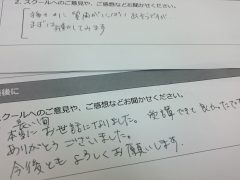 2. スクールへのご意見や、ご感想などお聞かせください。
まずは
最後に
スクールへのご意見や、ご感想などお聞かせください。
長い間
本当にお世話になりました。 受講できて良かったです
ありがとうございました。
今後ともよろしくお願いします。